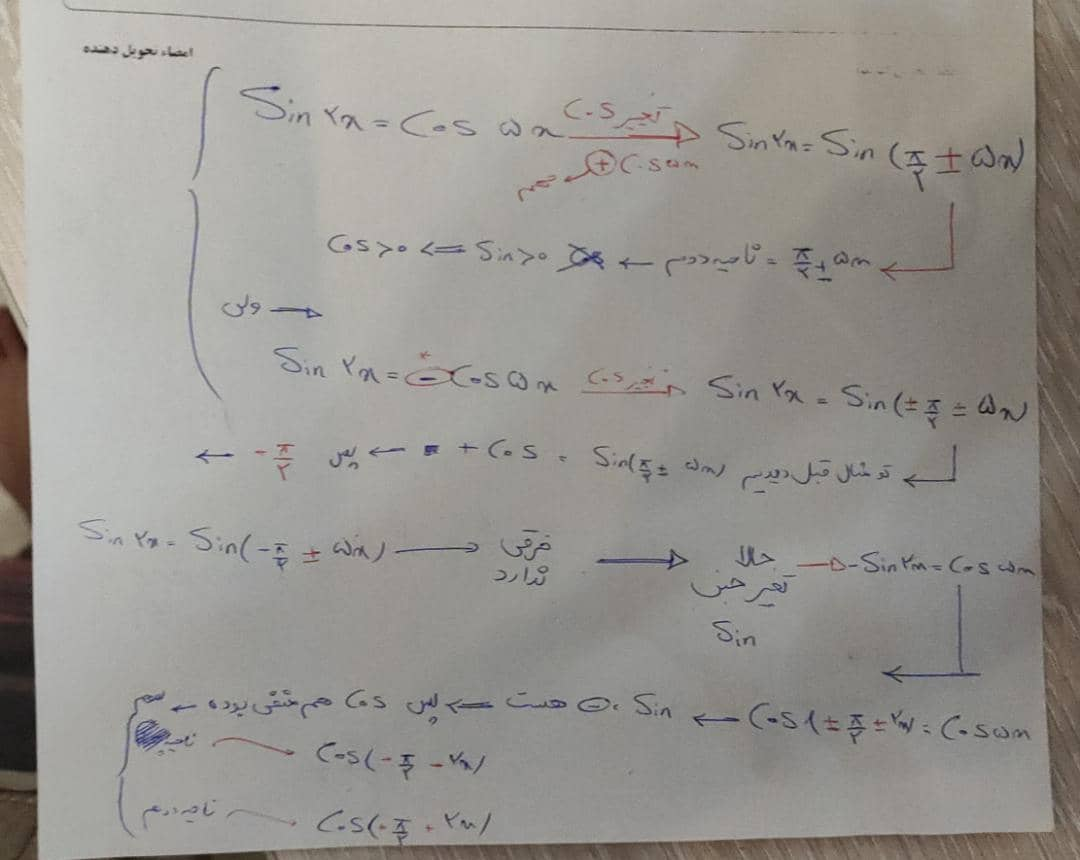 امضاء تحویل دهنده
Sin ۲x = Cos ۵x تغییر Cos Sin ۲x = Sin (π/۲ ± ۵x)
⊕ Cos ۵x
π/۲ ± ۵x = ناحیه دوم ← Sin>۰ => Cos>۰
ولی
Sin ۲x = -*Cos ۵x تغییر Cos Sin ۲x = Sin(± π/۲ ± ۵x)
تو مثال قبل دیدیم Sin(π/۲ ± ۵x) = Cos + ← پس -π/۲ ←
Sin ۲x = Sin(-π/۲ ± ۵x) → فرقی ندارد
حالا تغییر جنس Sin → -Sin ۲x = Cos ۵x
Cos(± π/۲ ± ۲x) = Cos ۵x ← Sin ⊖ هست => پس Cos هم منفی بوده ←
ناحیه Cos(-π/۲ - ۲x)
ناحیه دوم Cos(+π/۲ + ۲x)